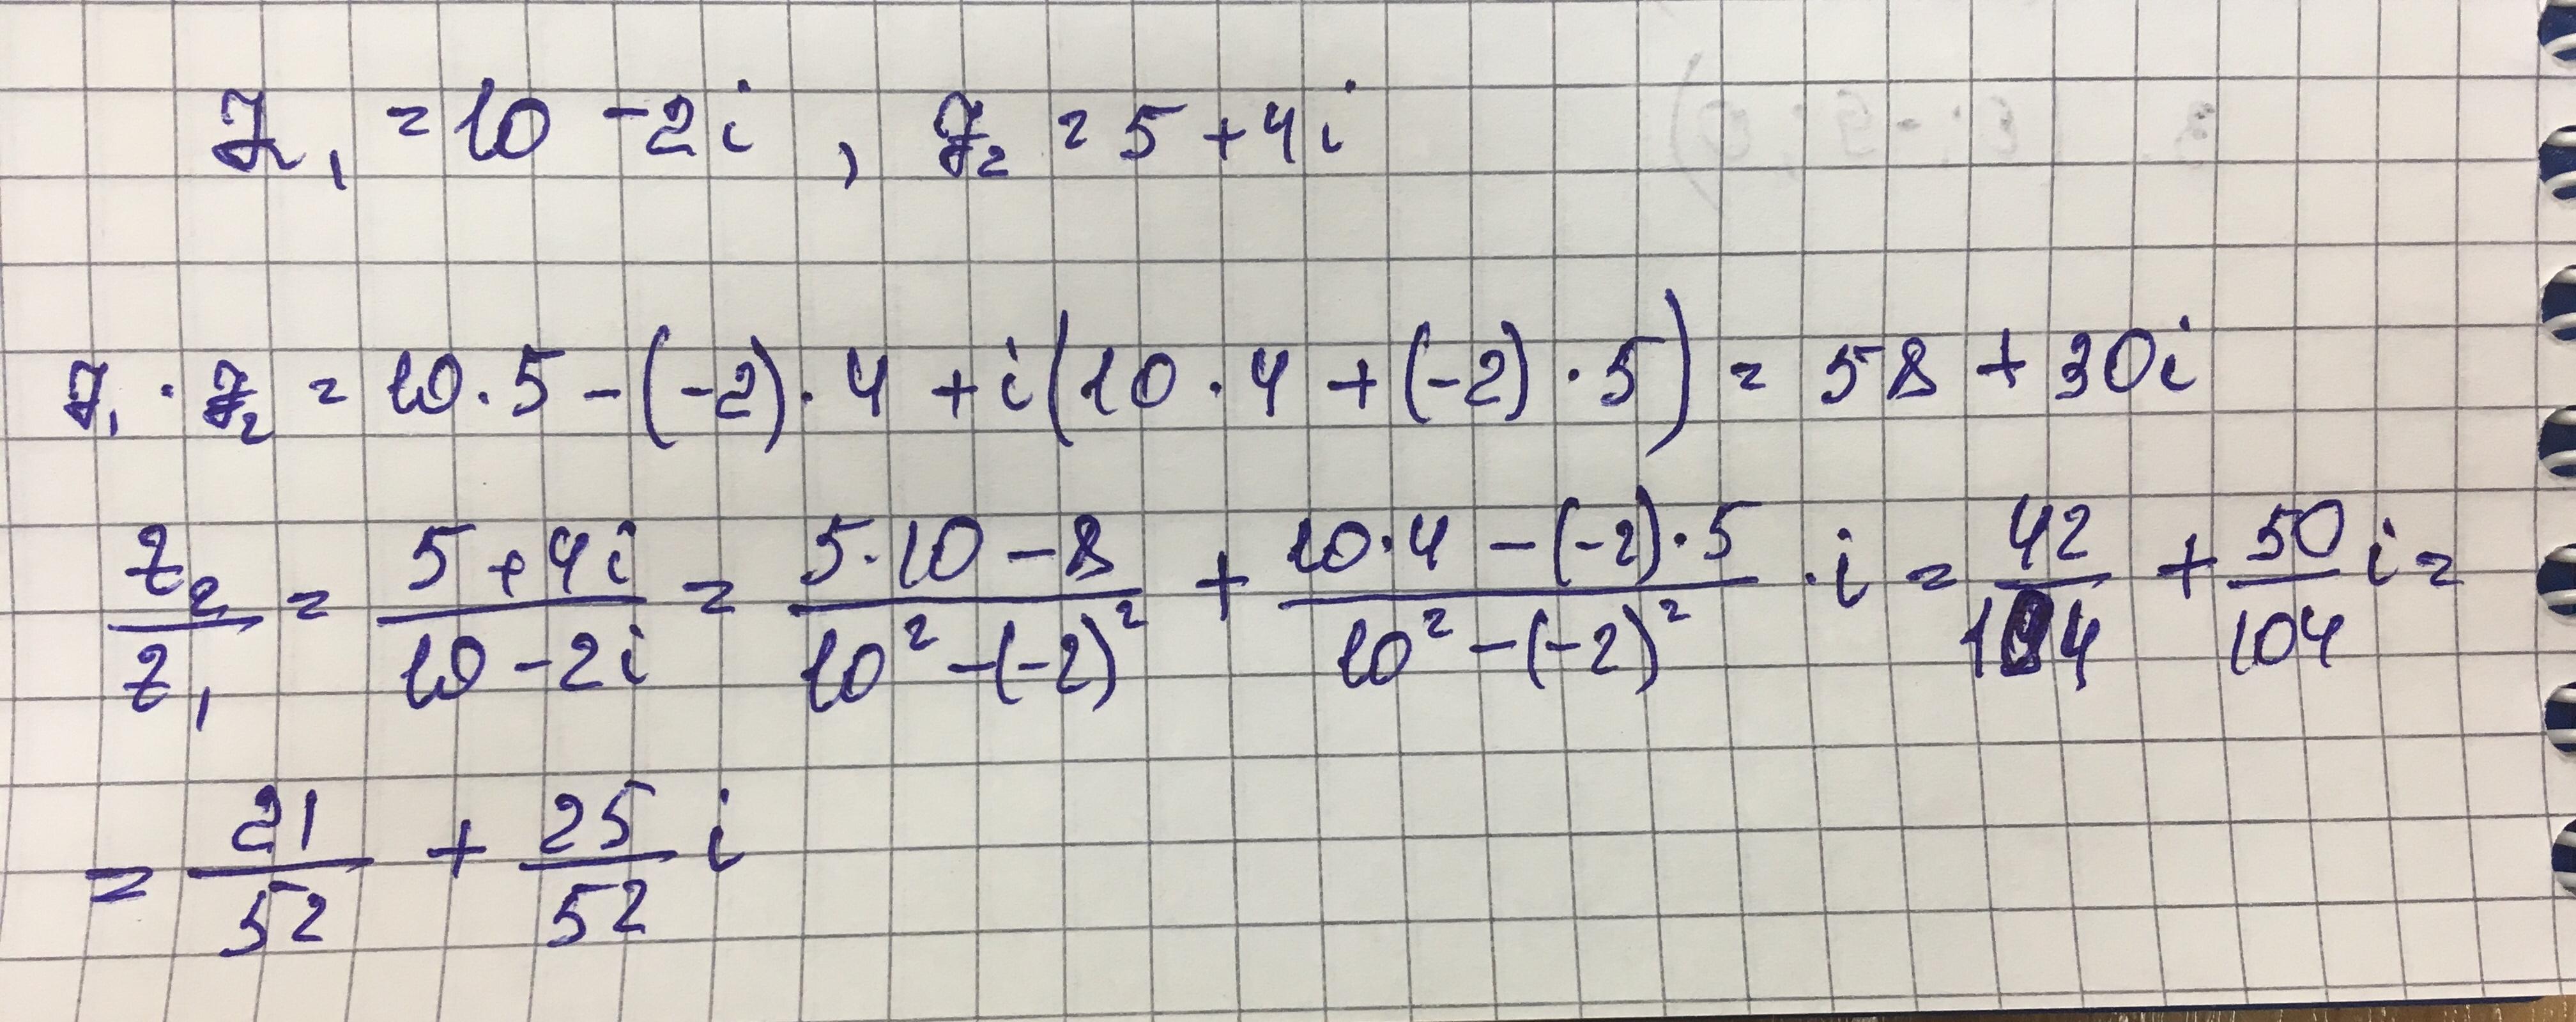 z₁ = 10 - 2i , z₂ = 5 + 4i
z₁ · z₂ = 10 · 5 - (-2) · 4 + i(10 · 4 + (-2) · 5) = 58 + 30i
z₂/z₁ = (5 + 4i)/(10 - 2i) = (5 · 10 - 8)/(10² - (-2)²) + (10 · 4 - (-2) · 5)/(10² - (-2)²) · i = 42/104 + 50/104 i =
= 21/52 + 25/52 i